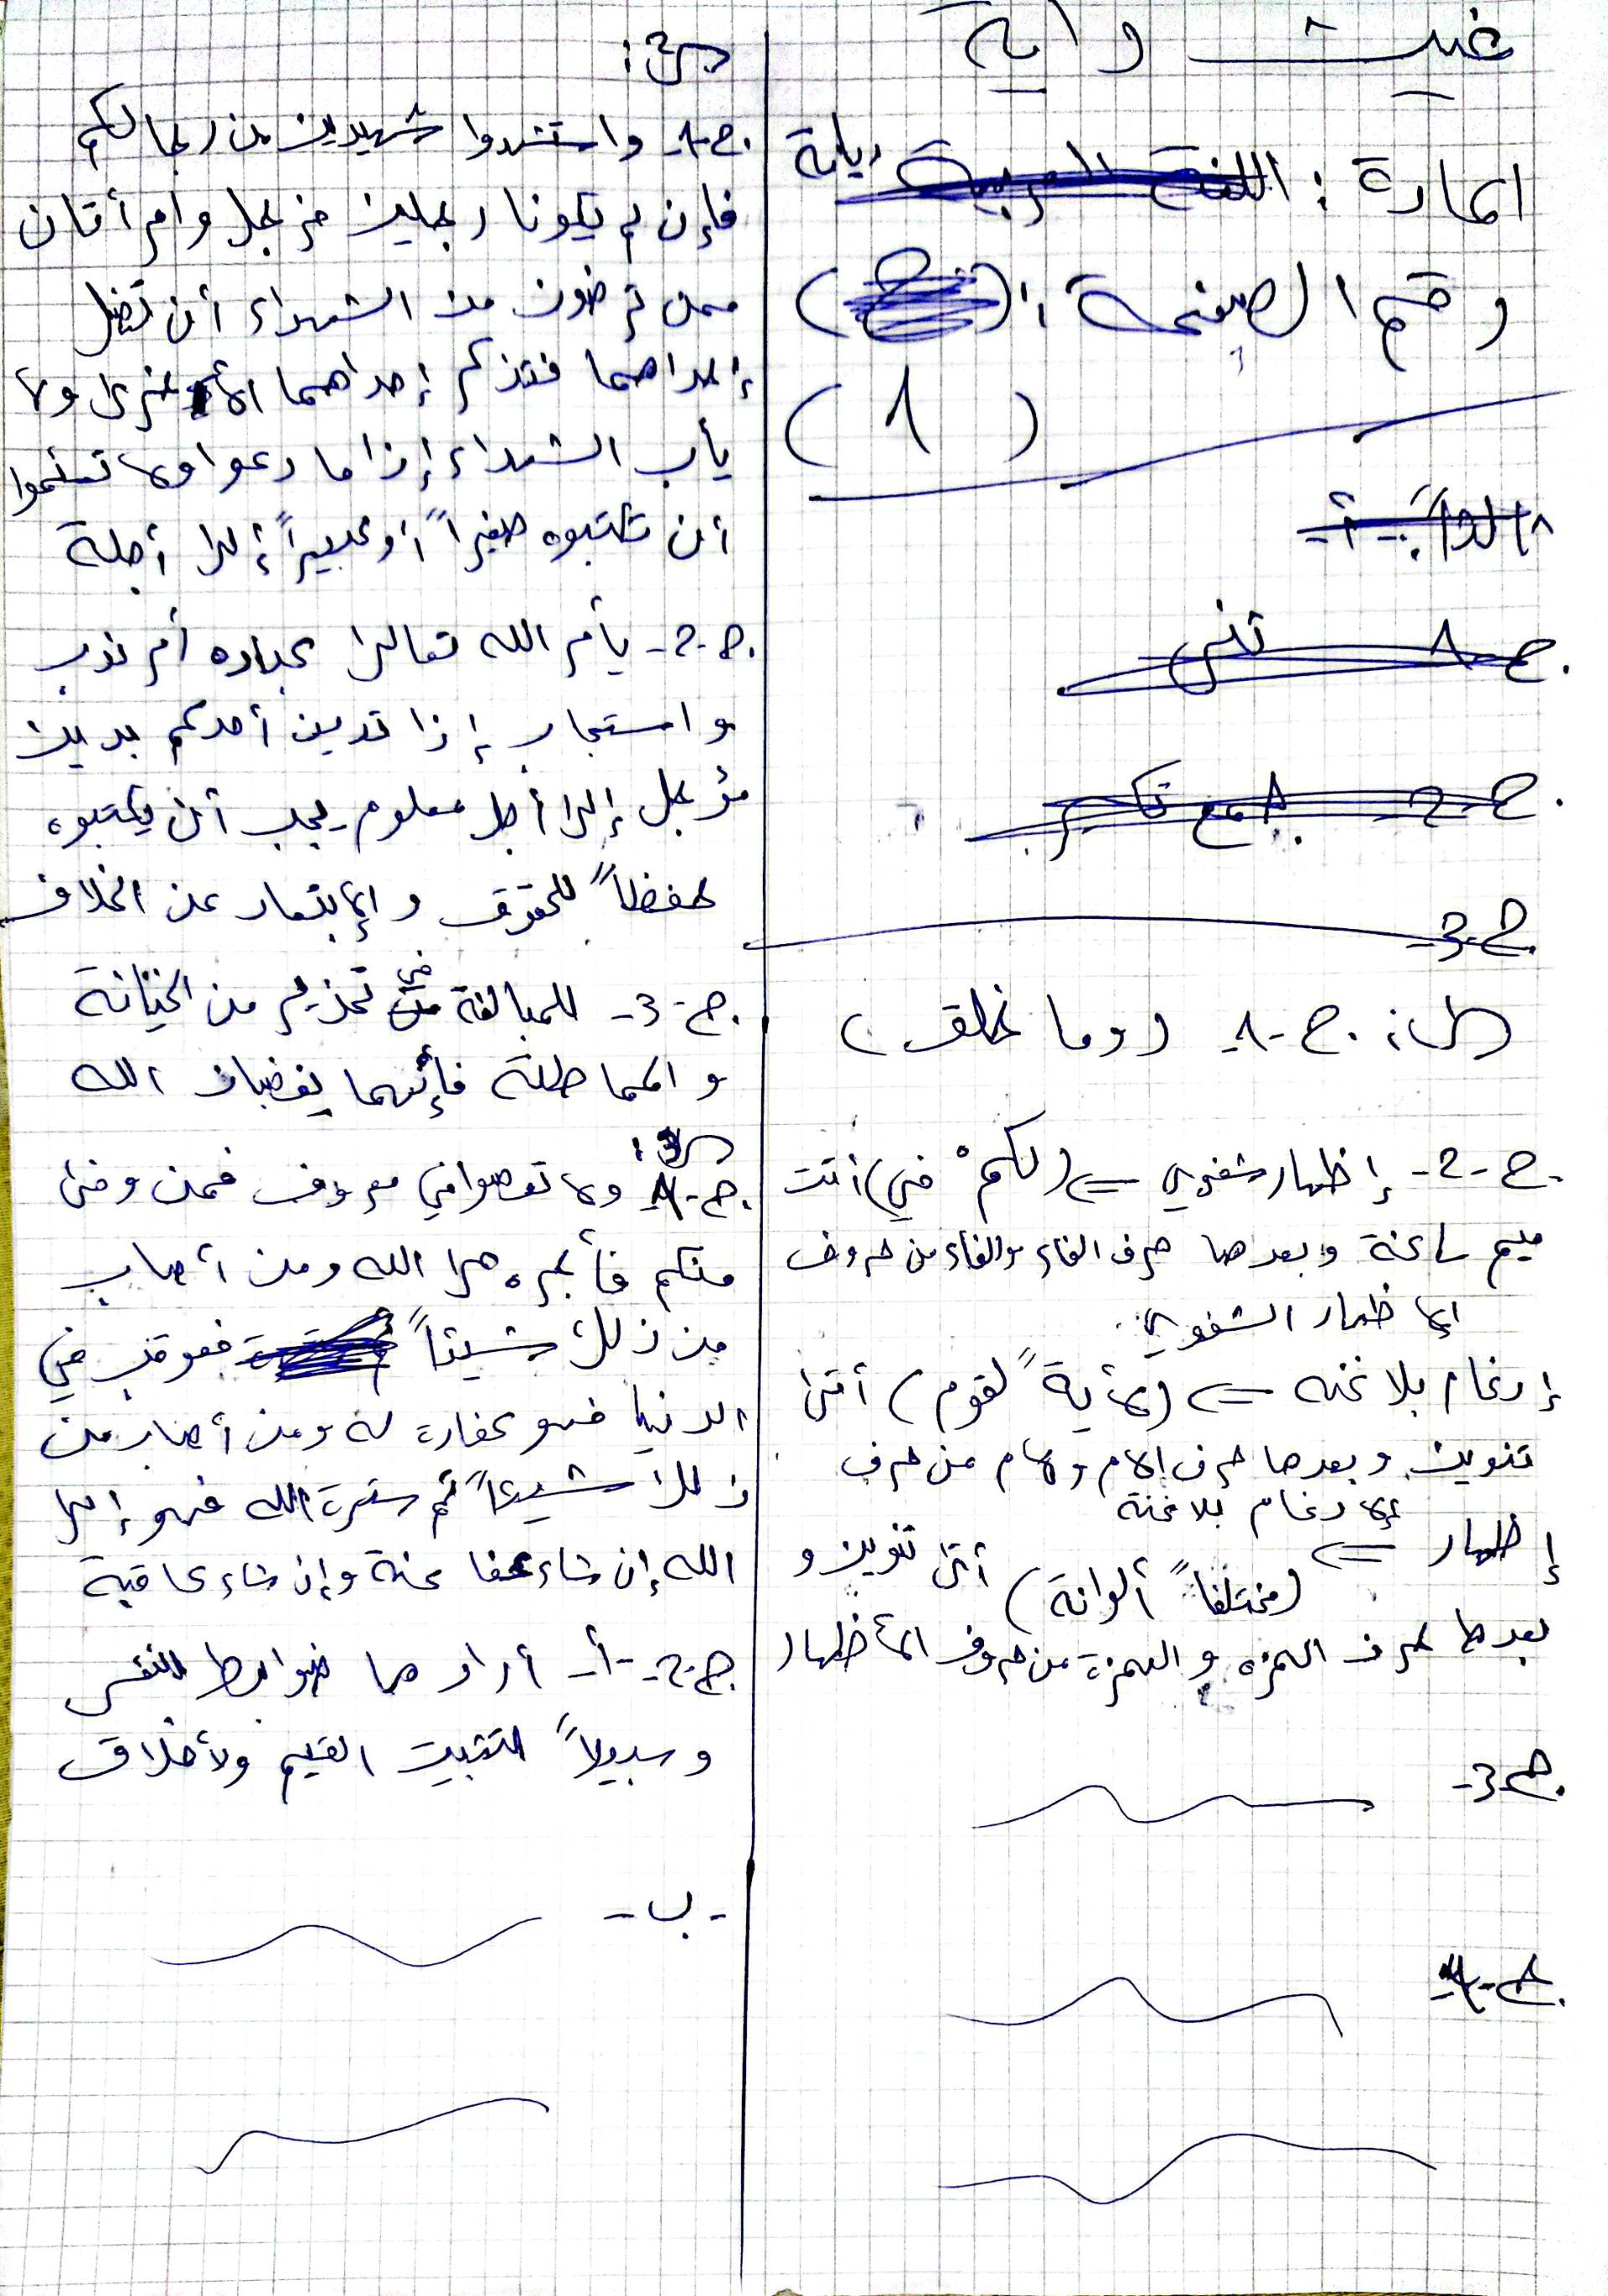 غيث داية
المادة : اللغة العربية ديانة
رقم الصفحة : (2)
(1)
ج-1- تنسى
ج-2- جمع تكسير
ج-3-
س1: ج-1- (وما خلق)
ج-2- إظهار شفوي <= (لكمْ في) أتت
ميم ساكنة وبعدها حرف الفاء والفاء من حروف
الإظهار الشفوي.
إدغام بلا غنه <= (لأيةً لقوم) أتى
تنوين وبعدها حرف الام ولام من حرف
الإدغام بلا غنة
إظهار <= (مختلفاً ألوانة) أتى تنوين و
بعدها حرف الهمزه والهمزة من حروف الأظهار
ج-3-
ج-4-
س2:
ج-1- واستشهدوا شهيدين من رجالكم
فإن لم يكونا رجلين فرجل وامرأتان
ممن ترضون من الشهداء أن تضل
إحداهما فتذكر إحداهما الأخرى ولا
يأب الشهداء إذا ما دعوا ولا تسئموا
أن تكتبوه صغيراً أو كبيراً إلى أجلة
ج-2- يأمر الله تعالى عباده أمر ندب
واستجاب إذا تدين أحدكم بدين
مؤجل إلى أجل معلوم يجب أن يكتبوه
حفظاً للحقوق و الإبتعاد عن الخلاف
ج-3- للمبالغة في تحذير من الخيانة
والمماطلة فأنهما يغضبان الله
س3:
ج-1- ولا تعصوا في معروف فمن وفى
منكم فأجره على الله ومن أصاب
من ذلك شيئاً فعوقب في
الدنيا فهو كفارة له ومن أصاب من
ذلك شيئاً ثم سترة الله فهو إلى
الله إن شاء عفا عنة وإن شاء عاقبة
ج-2- أ- أرادهما ضوابط للنفس
وسبيلاً لتثبيت القيم ولأخلاق
-ب-